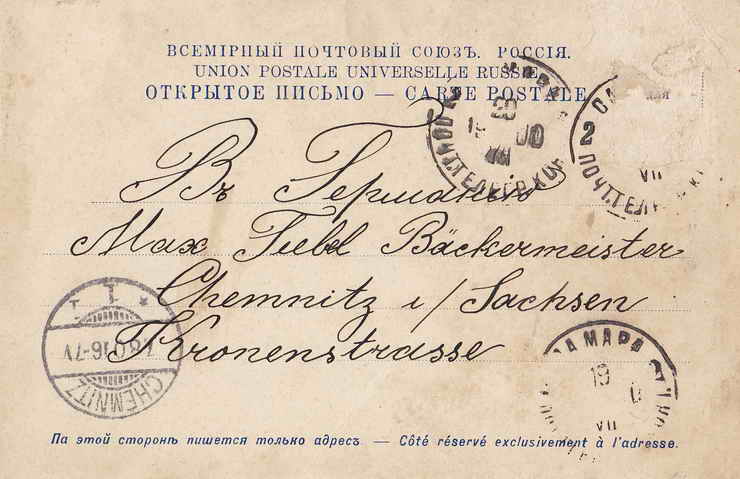 ВСЕМІРНЫЙ ПОЧТОВЫЙ СОЮЗЪ. РОССІЯ.
UNION POSTALE UNIVERSELLE RUSSIE
ОТКРЫТОЕ ПИСЬМО — CARTE POSTALE
2
ПОЧТ.ТЕЛ
VII
20
Въ Германію
Max Bäckermeister
Chemnitz i/Sachsen
Kronenstrasse
CHEMNITZ
САМАРА
19
VII
На этой сторонѣ пишется только адресъ — Côté réservé exclusivement à l'adresse.